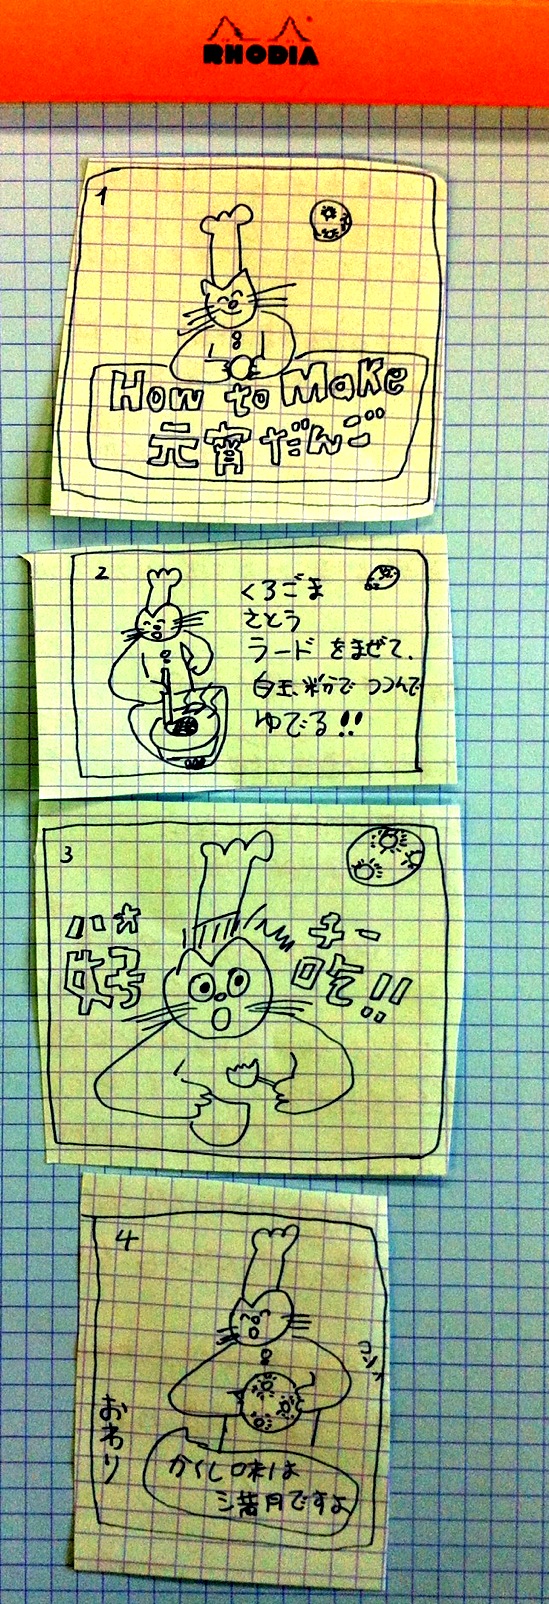 RHODIA
1
How to Make
元宵だんご
2
くろごま
さとう
ラードをまぜて、
白玉粉でつつんで
ゆでる!!
3
ハオ
好
チー
吃!!
4
おわり
かくし味は
満月ですよ